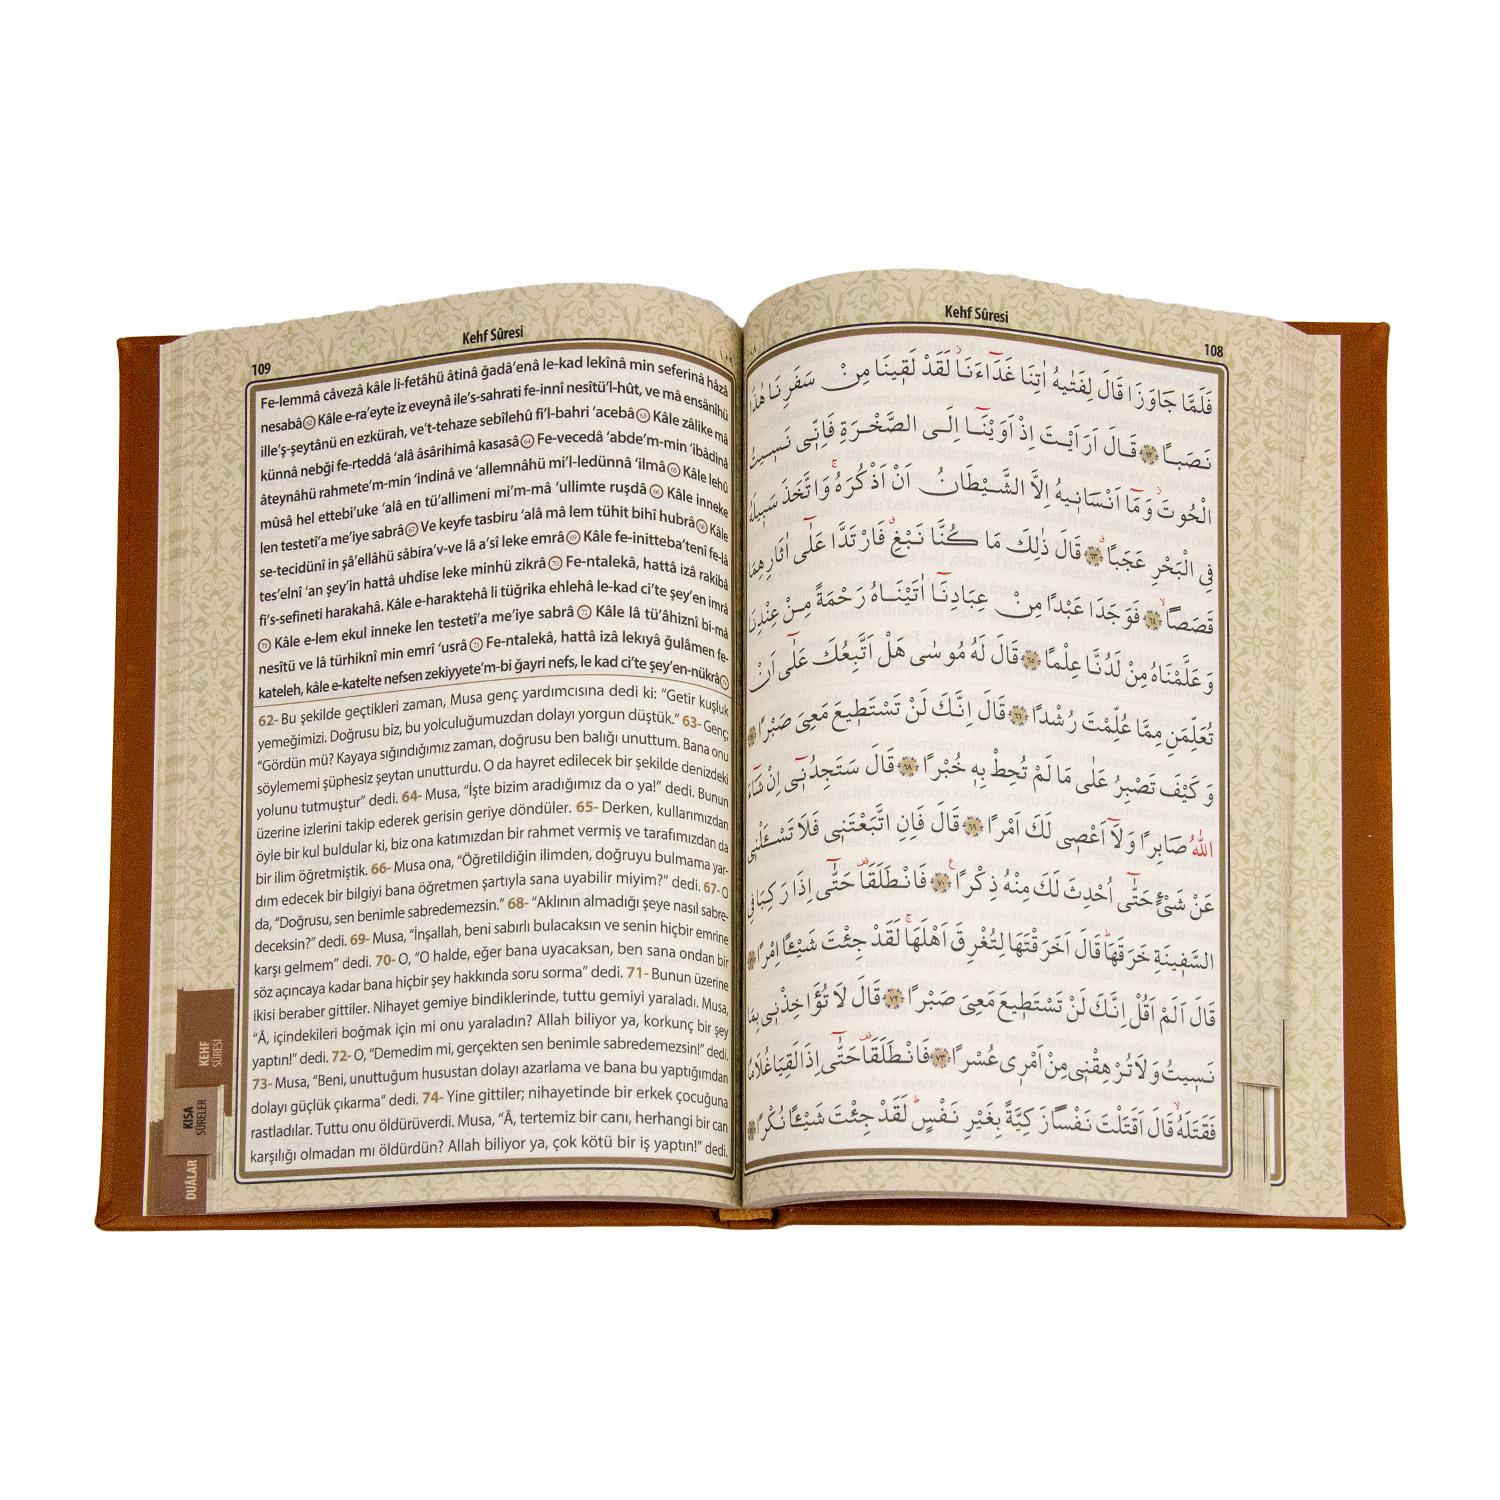 Kehf Sûresi
108
فَلَمَّا جَاوَزَا قَالَ لِفَتٰيهُ اٰتِنَا غَدَٓاءَنَاۘ لَقَدْ لَقٖينَا مِنْ سَفَرِنَا هٰذَا
نَصَبًا ﴿٦٢﴾ قَالَ اَرَاَيْتَ اِذْ اَوَيْنَٓا اِلَى الصَّخْرَةِ فَاِنّٖى نَسٖيتُ
الْحُوتَۘ وَمَٓا اَنْسَانٖيهُ اِلَّا الشَّيْطَانُ اَنْ اَذْكُرَهُۚ وَاتَّخَذَ سَبٖيلَهُ
فِى الْبَحْرِ عَجَبًا ﴿٦٣﴾ قَالَ ذٰلِكَ مَا كُنَّا نَبْغِۗ فَارْتَدَّا عَلٰٓى اٰثَارِهِمَا
قَصَصًاۙ ﴿٦٤﴾ فَوَجَدَا عَبْدًا مِنْ عِبَادِنَٓا اٰتَيْنَاهُ رَحْمَةً مِنْ عِنْدِنَا
وَعَلَّمْنَاهُ مِنْ لَدُنَّا عِلْمًا ﴿٦٥﴾ قَالَ لَهُ مُوسٰى هَلْ اَتَّبِعُكَ عَلٰٓى اَنْ
تُعَلِّمَنِ مِمَّا عُلِّمْتَ رُشْدًا ﴿٦٦﴾ قَالَ اِنَّكَ لَنْ تَسْتَطٖيعَ مَعِىَ صَبْرًا
وَكَيْفَ تَصْبِرُ عَلٰى مَا لَمْ تُحِطْ بِهٖ خُبْرًا ﴿٦٨﴾ قَالَ سَتَجِدُنٖٓى اِنْ شَٓاءَ
اللّٰهُ صَابِرًا وَلَٓا اَعْصٖى لَكَ اَمْرًا ﴿٦٩﴾ قَالَ فَاِنِ اتَّبَعْتَنٖى فَلَا تَسْـَٔلْنٖى
عَنْ شَیْءٍ حَتّٰٓى اُحْدِثَ لَكَ مِنْهُ ذِكْرًاࣖ ﴿٧٠﴾ فَانْطَلَقَا۠ حَتّٰٓى اِذَا رَكِبَا فِى
السَّفٖينَةِ خَرَقَهَاؕ قَالَ اَخَرَقْتَهَا لِتُغْرِقَ اَهْلَهَاۚ لَقَدْ جِئْتَ شَيْـًٔا اِمْرًا
قَالَ اَلَمْ اَقُلْ اِنَّكَ لَنْ تَسْتَطٖيعَ مَعِىَ صَبْرًا ﴿٧٢﴾ قَالَ لَا تُؤَاخِذْنٖى بِمَا
نَسٖيتُ وَلَا تُرْهِقْنٖى مِنْ اَمْرٖى عُسْرًا ﴿٧٣﴾ فَانْطَلَقَا۠ حَتّٰٓى اِذَا لَقِيَا غُلَامًا
فَقَتَلَهُۙ قَالَ اَقَتَلْتَ نَفْسًا زَكِيَّةً بِغَيْرِ نَفْسٍؕ لَقَدْ جِئْتَ شَيْـًٔا نُكْرًا
Kehf Sûresi
109
Fe-lemmâ câvezâ kâle li-fetâhü âtinâ ğadâ’enâ le-kad lekînâ min seferinâ hâzâ
nesabâ(62) Kâle e-ra’eyte iz eveynâ ile’s-sahrati fe-innî nesîtü’l-hût, ve mâ ensânîhü
ille’ş-şeytânü en ezkürah, ve’t-tehaze sebîlehû fi’l-bahri ‘acebâ(63) Kâle zâlike mâ
künnâ nebği fe-rteddâ ‘alâ âsârihimâ kasasâ(64) Fe-vecedâ ‘abde’m-min ‘ibâdinâ
âteynâhü rahmete’m-min ‘indinâ ve ‘allemnâhü mi’l-ledünnâ ‘ilmâ(65) Kâle lehû
mûsâ hel ettebi’uke ‘alâ en tü’allimeni mi’m-mâ ‘ullimte ruşdâ(66) Kâle inneke
len testetî’a me’iye sabrâ(67) Ve keyfe tasbiru ‘alâ mâ lem tühit bihî hubrâ(68) Kâle
se-tecidünî in şâ’ellâhü sâbira’v-ve lâ a’sî leke emrâ(69) Kâle fe-initteba’tenî fe-lâ
tes’elnî ‘an şey’in hattâ uhdise leke minhü zikrâ(70) Fe-ntalekâ, hattâ izâ rakibâ
fi’s-sefîneti harakahâ. Kâle e-haraktehâ li tüğrika ehlehâ le-kad ci’te şey’en imrâ
(71) Kâle e-lem ekul inneke len testetî’a me’iye sabrâ(72) Kâle lâ tü’âhiznî bi-mâ
nesîtü ve lâ türhiknî min emrî ‘usrâ(73) Fe-ntalekâ, hattâ izâ lekıyâ ğulâmen fe-
kateleh, kâle e-katelte nefsen zekiyyete’m-bi ğayri nefs, le kad ci’te şey’en-nükrâ(74)
62- Bu şekilde geçtikleri zaman, Musa genç yardımcısına dedi ki: “Getir kuşluk
yemeğimizi. Doğrusu biz, bu yolculuğumuzdan dolayı yorgun düştük.” 63- Genç,
“Gördün mü? Kayaya sığındığımız zaman, doğrusu ben balığı unuttum. Bana onu
söylememi şüphesiz şeytan unutturdu. O da hayret edilecek bir şekilde denizdeki
yolunu tutmuştur” dedi. 64- Musa, “İşte bizim aradığımız da o ya!” dedi. Bunun
üzerine izlerini takip ederek gerisin geriye döndüler. 65- Derken, kullarımızdan
öyle bir kul buldular ki, biz ona katımızdan bir rahmet vermiş ve tarafımızdan da
bir ilim öğretmiştik. 66- Musa ona, “Öğretildiğin ilimden, doğruyu bulmama yar-
dım edecek bir bilgiyi bana öğretmen şartıyla sana uyabilir miyim?” dedi. 67- O
da, “Doğrusu, sen benimle sabredemezsin.” 68- “Aklının almadığı şeye nasıl sabre-
deceksin?” dedi. 69- Musa, “İnşallah, beni sabırlı bulacaksın ve senin hiçbir emrine
karşı gelmem” dedi. 70- O, “O halde, eğer bana uyacaksan, ben sana ondan bir
söz açıncaya kadar bana hiçbir şey hakkında soru sorma” dedi. 71- Bunun üzerine
ikisi beraber gittiler. Nihayet gemiye bindiklerinde, tuttu gemiyi yaraladı. Musa,
“Â, içindekileri boğmak için mi onu yaraladın? Allah biliyor ya, korkunç bir şey
yaptın!” dedi. 72- O, “Demedim mi, gerçekten sen benimle sabredemezsin!” dedi.
73- Musa, “Beni, unuttuğum husustan dolayı azarlama ve bana bu yaptığımdan
dolayı güçlük çıkarma” dedi. 74- Yine gittiler; nihayetinde bir erkek çocuğuna
rastladılar. Tuttu onu öldürüverdi. Musa, “Â, tertemiz bir canı, herhangi bir can
karşılığı olmadan mı öldürdün? Allah biliyor ya, çok kötü bir iş yaptın!” dedi.
KEHF
SÛRESİ
KISA
SÛRELER
DUÂLAR